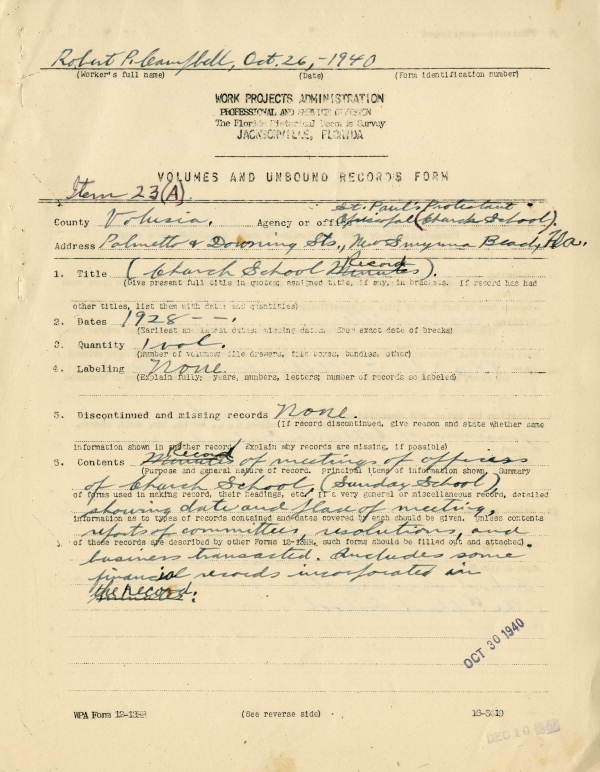 Robert P. Campbell, Oct. 26, - 1940
(Worker's full name) (Date) (Form identification number)
WORK PROJECTS ADMINISTRATION
PROFESSIONAL AND SERVICE DIVISION
The Florida Historical Records Survey
JACKSONVILLE, FLORIDA
VOLUMES AND UNBOUND RECORDS FORM
Item 23(A).
St. Paul's Protestant
County Volusia. Agency or office Episcopal (Church School).
Address Palmetto & Downing Sts., New Smyrna Beach, Fla.
Record
1. Title (Church School Minutes).
(Give present full title in quotes; assigned title, if any, in brackets. If record has had
other titles, list them with dates and quantities)
2. Dates 1928 - - .
(Earliest and latest dates; missing dates. Show exact date of breaks)
3. Quantity 1 vol.
(Number of volumes; file drawers, file boxes, bundles, other)
4. Labeling None.
(Explain fully; years, numbers, letters; number of records so labeled)
5. Discontinued and missing records None.
(If record discontinued, give reason and state whether same
information shown in another record. Explain why records are missing, if possible)
Record
6. Contents Minutes of meetings of officers
(Purpose and general nature of record. Principal items of information shown. Summary
of Church School (Sunday School)
of forms used in making record, their headings, etc. If a very general or miscellaneous record, detailed
showing date and place of meeting,
information as to types of records contained and dates covered by each should be given. Unless contents
reports of committees, resolutions, and
of these records are described by other Forms 12-13HR, such forms should be filled out and attached.
business transacted. Includes some
financial records incorporated in
the record.
OCT 30 1940
WPA Form 12-13HR (See reverse side)
DEC 10